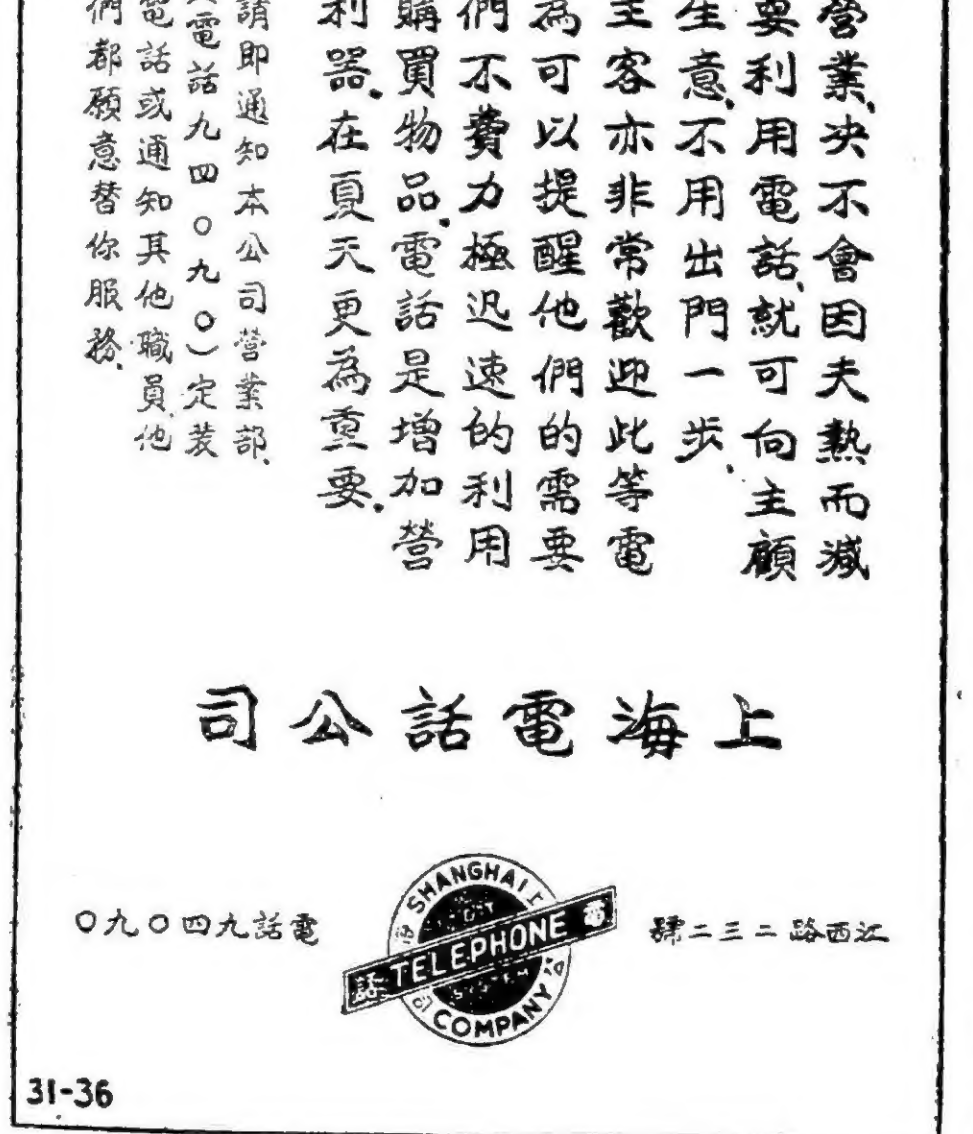 營業、决不會因夫熱而減
要利用電話、就可向主顧
生意、不用出門一步、
主客亦非常歡迎此等電
為可以提醒他們的需要
們不費力極迅速的利用
購買物品、電話是增加營
利器、在夏天更為重要、
請即通知本公司營業部、
電話九四〇九〇)定裝
電話或通知其他職員、他
們都願意替你服務、
上海電話公司
江西路二三二號
SHANGHAI
TELEPHONE
SYSTEM
COMPANY
電話九四〇九〇
31-36